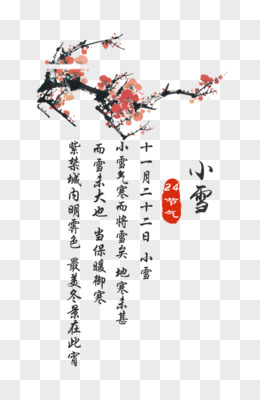 小雪
24
节气
十一月二十二日 小雪
小雪气寒而将雪矣 地寒未甚
而雪未大也 当保暖御寒
紫禁城内明霁色 最美冬景在此宵